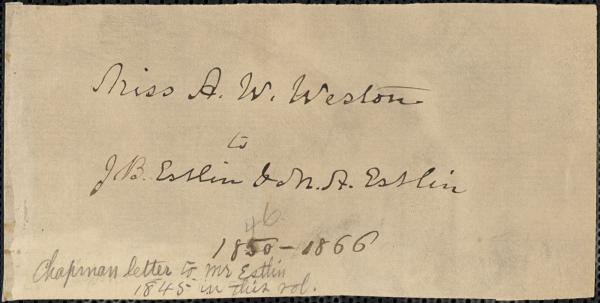 Miss A. W. Weston
to
J. B. Estlin & M. A. Estlin
46
1850 - 1866
Chapman letter to Mr Estlin
1845 in this vol.